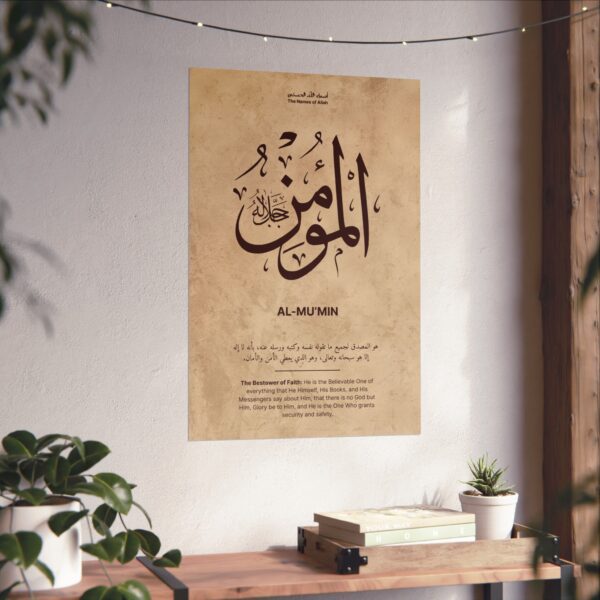 أسماء الله الحسنى
The Names of Allah
المؤمن
جل جلاله
AL-MU'MIN
هو المصدق لجميع ما تقوله نفسه وكتبه ورسله عنه، بأنه لا إله
إلا هو سبحانه وتعالى، وهو الذي يعطي الأمن والأمان.
The Bestower of Faith: He is the Believable One of
everything that He Himself, His Books, and His
Messengers say about Him, that there is no God but
Him, Glory be to Him, and He is the One Who grants
security and safety.